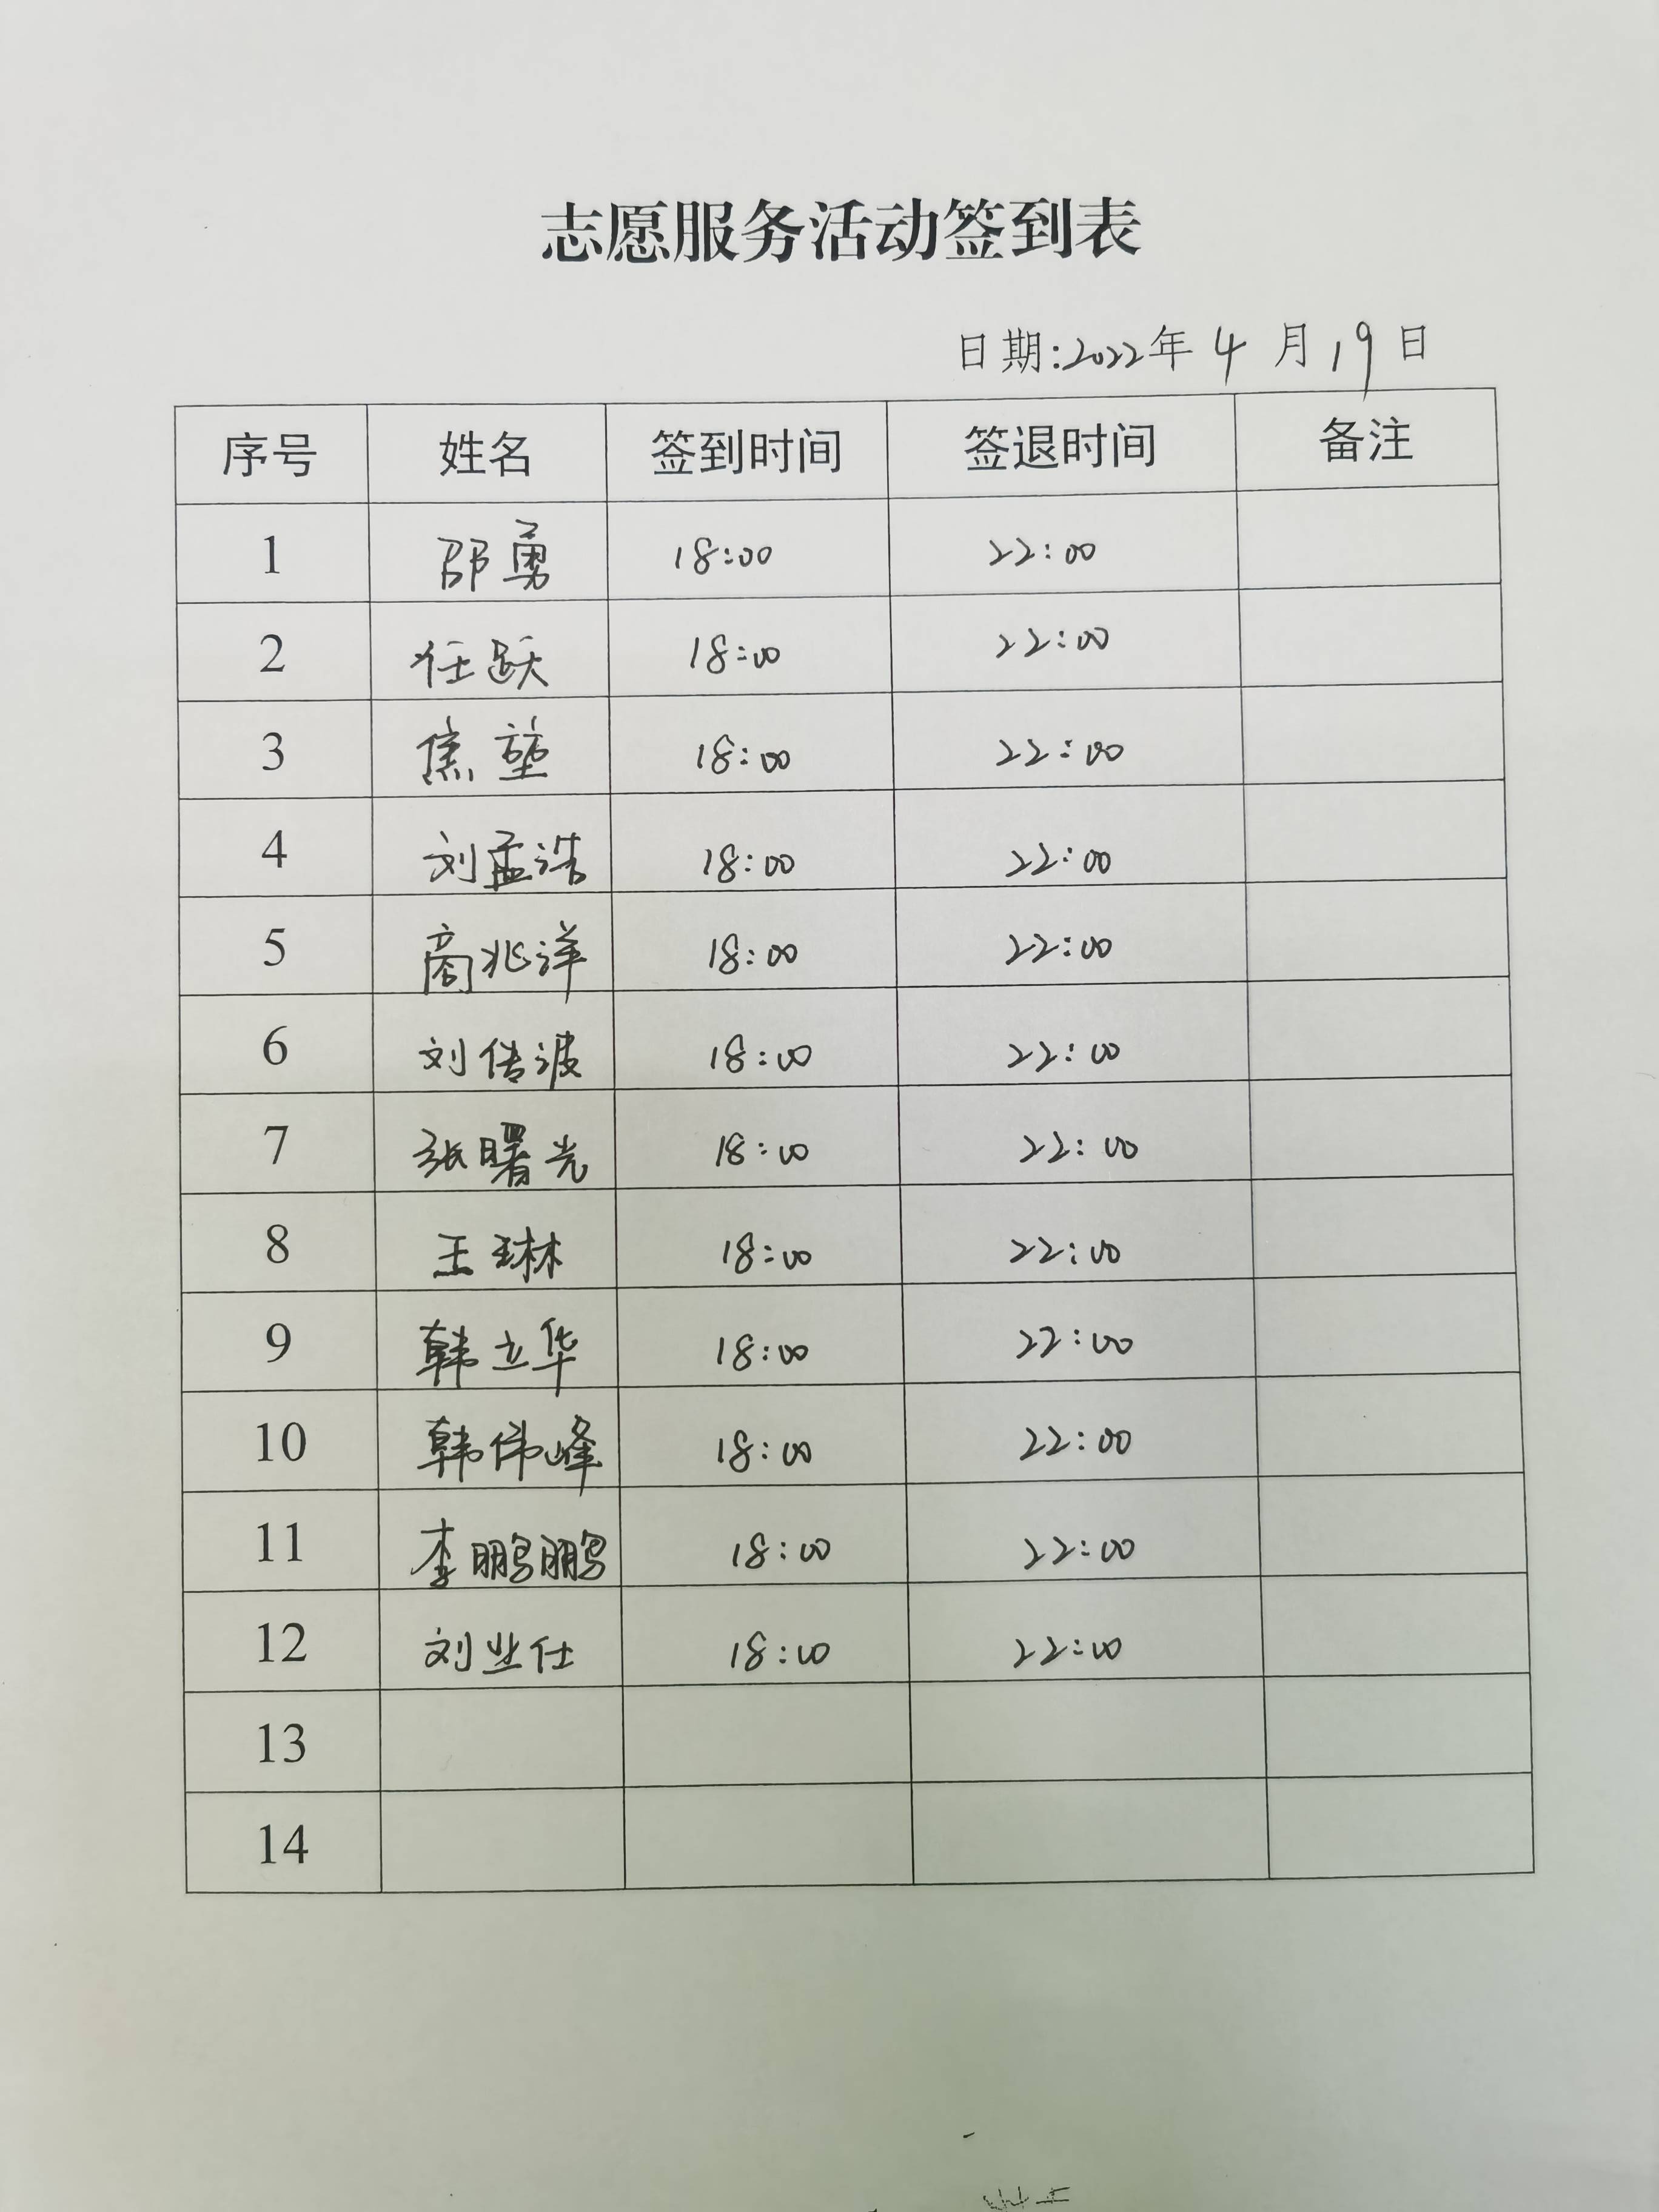 志愿服务活动签到表
日期:2022年 4 月 19 日
序号 姓名 签到时间 签退时间 备注
1 邵勇 18:00 22:00
2 任跃 18:00 22:00
3 焦堃 18:00 22:00
4 刘孟浩 18:00 22:00
5 商兆洋 18:00 22:00
6 刘传波 18:00 22:00
7 张曙光 18:00 22:00
8 王琳 18:00 22:00
9 韩立华 18:00 22:00
10 韩伟峰 18:00 22:00
11 李鹏鹏 18:00 22:00
12 刘业仕 18:00 22:00
13
14